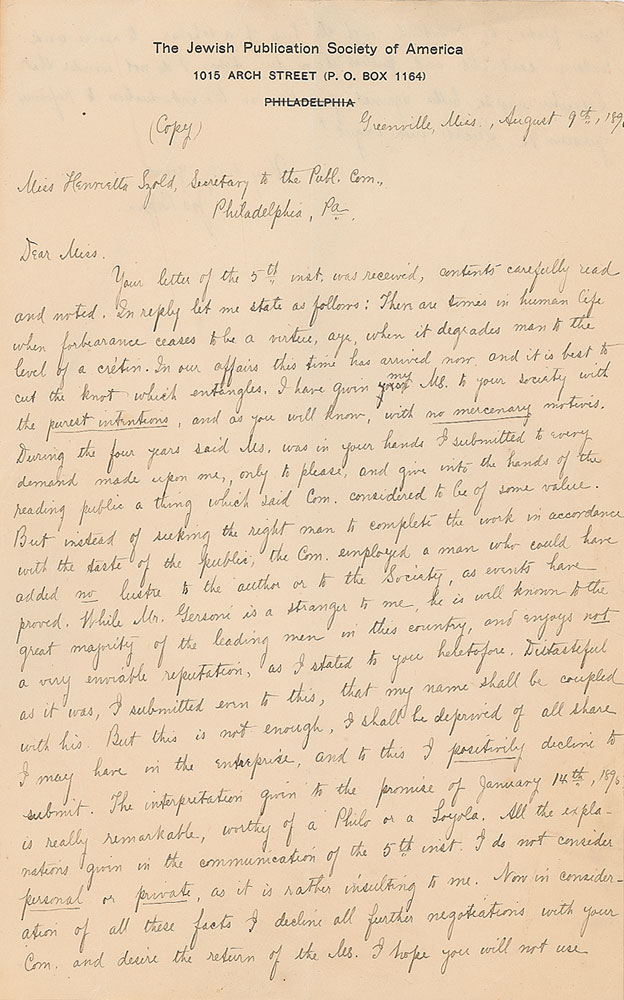 The Jewish Publication Society of America
1015 ARCH STREET (P. O. BOX 1164)
PHILADELPHIA
(Copy)
Greenville, Miss., August 9th, 189
Miss Henrietta Szold, Secretary to the Publ. Com.,
Philadelphia, Pa.
Dear Miss.
Your letter of the 5th inst. was received, contents carefully read
and noted. In reply let me state as follows: There are times in human life
when forbearance ceases to be a virtue, aye, when it degrades man to the
level of a crétin. In our affairs this time has arrived now, and it is best to
cut the knot which entangles. I have given my Ms. to your society with
the purest intentions, and as you well know, with no mercenary motives.
During the four years said Ms. was in your hands I submitted to every
demand made upon me, only to please, and give into the hands of the
reading public a thing which said Com. considered to be of some value.
But instead of seeking the right man to complete the work in accordance
with the taste of the public, the Com. employed a man who could have
added no lustre to the author or to the Society, as events have
proved. While Mr. Gersoni is a stranger to me, he is well known to the
great majority of the leading men in this country, and enjoys not
a very enviable reputation, as I stated to you heretofore. Distasteful
as it was, I submitted even to this, that my name shall be coupled
with his. But this is not enough, I shall be deprived of all share
I may have in the enterprise, and to this I positively decline to
submit. The interpretation given to the promise of January 14th, 189
is really remarkable, worthy of a Philo or a Loyola. All the expla-
nations given in the communication of the 5th inst. I do not consider
personal or private, as it is rather insulting to me. Now in consider-
ation of all these facts I decline all further negotiations with your
Com. and desire the return of the Ms. I hope you will not use